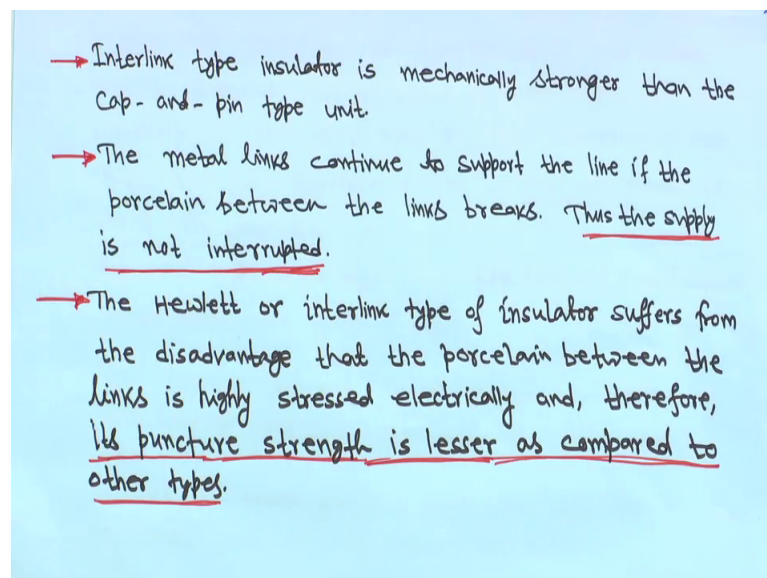 → Interlink type insulator is mechanically stronger than the
Cap-and-pin type unit.
→ The metal links continue to support the line if the
porcelain between the links breaks. Thus the supply
is not interrupted.
→ The Hewlett or interlink type of insulator suffers from
the disadvantage that the porcelain between the
links is highly stressed electrically and, therefore,
its puncture strength is lesser as compared to
other types.